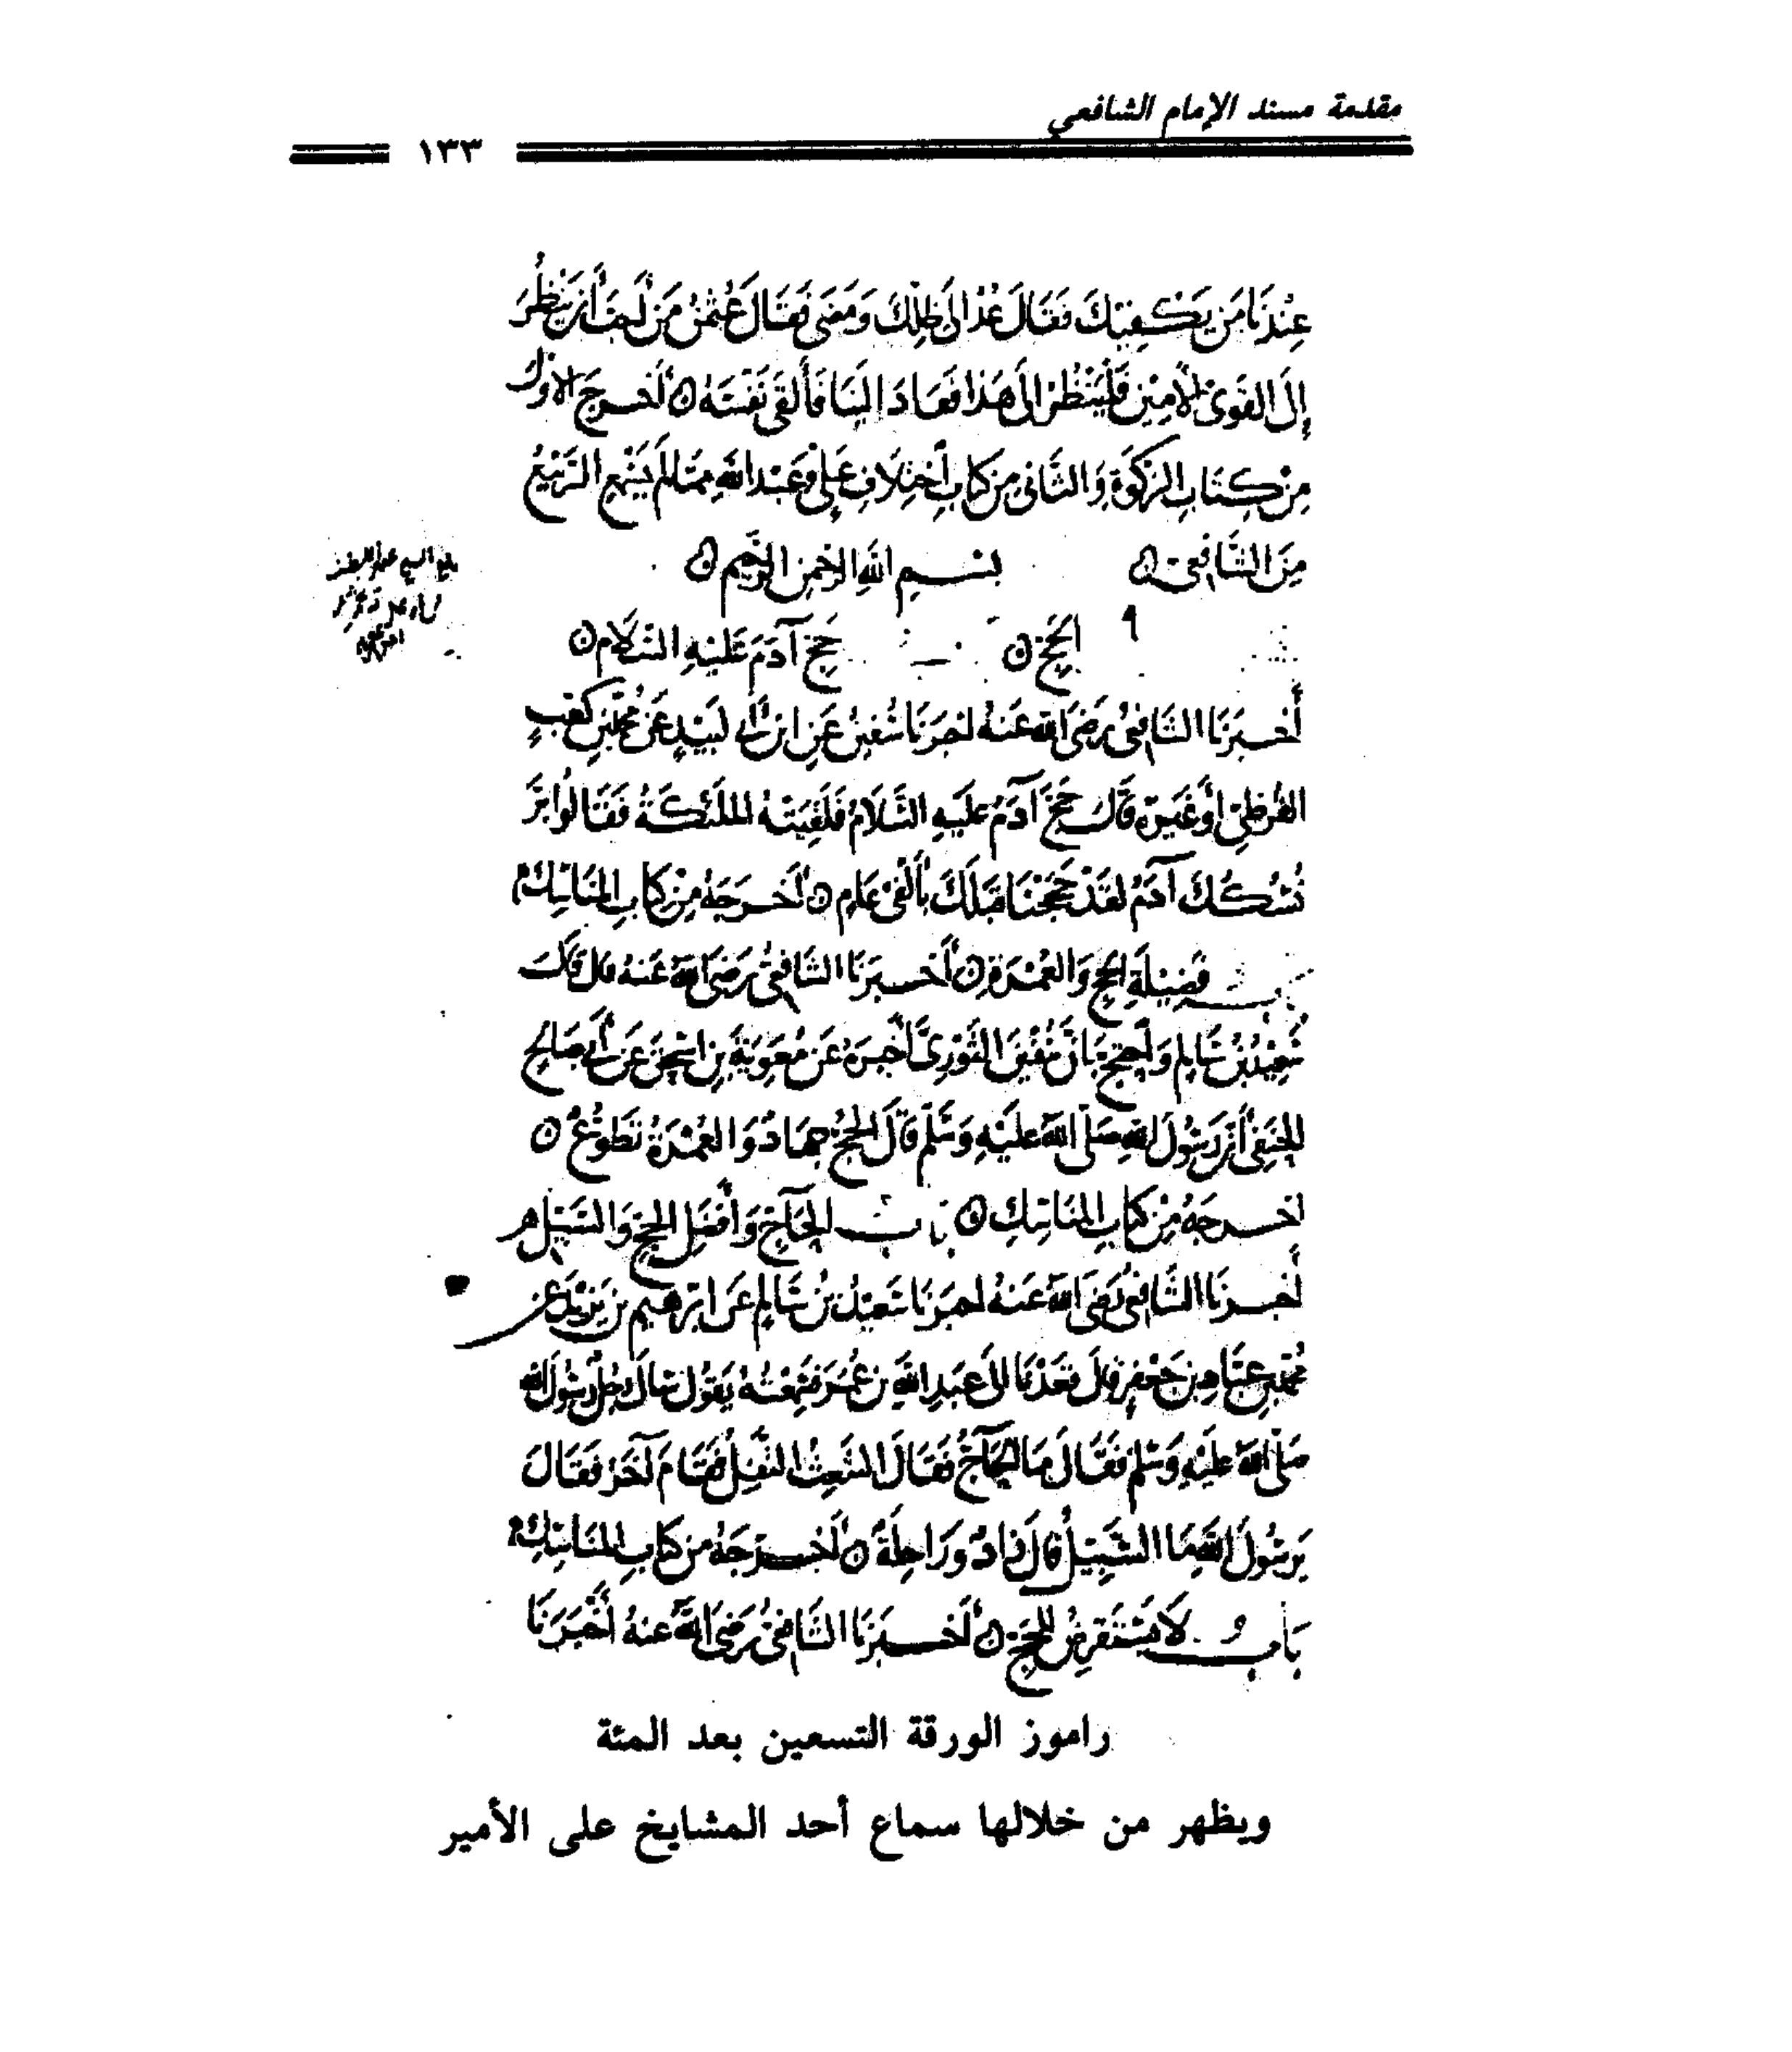 مقدمة مسند الإمام الشافعي
١٣٣
عِنْدَنَا مَن يَكْفِيكَ فَقَالَ عُدْ إِلَى ظِلِّكَ وَمَضَى فَقَالَ عُثْمٰنُ مَنْ أَحَبَّ أَن يَنْظُرَ
إِلَى القَوِىِّ الأَمِيْنِ فَلْيَنْظُرْ إِلَى هَذَا فَعَادَ إِلَيْنَا فَأَلْقَى نَفْسَهُ ۞ أَخْرَجَ الأوّل
مِنْ كِتَابِ الزَّكَوٰةِ وَالثَّانِى مِن كِتَابِ اخْتِلَافِ عَلِيٍّ وَعَبْدِ اللّٰهِ مِمَّا لَمْ يَسْمَعِ الرَّبِيْعُ
مِنَ الشَّافِعِى ۞ بِسْمِ اللّٰهِ الرَّحْمٰنِ الرَّحِيمِ ۞
الحَجّ ۞ حَجِّ آدَمَ عَلَيْهِ السَّلَام ۞
أَخْبَرَنَا الشَّافِعِىُّ رَضِىَ اللّٰهُ عَنْهُ أخبَرَنَا سُفْيٰنُ عَنِ ابْنِ أَبِى لَبِيْدٍ عَنْ مُحَمَّدِ بْنِ كَعْبٍ
القُرَظِىِّ أَوْ غَيْرِهِ قَالَ حَجَّ آدَمُ عَلَيْهِ السَّلَامُ فَلَقِيَتْهُ الملَئكَةُ فَقَالُوا بَرَّ
نُسُكُكَ آدَمُ لَقَدْ حَجَجْنَا قَبْلَكَ بِأَلْفَىْ عَامٍ ۞ أَخْرَجَهُ مِنْ كِتَابِ المَنَاسِكِ ۞
باب فَضِيْلَةِ الحَجِّ وَالعُمْرَةِ ۞ أَخْبَرَنَا الشَّافِعِىُّ رَضِىَ اللّٰهُ عَنْهُ قال قَالَ
سَعِيْدُ بْنُ سَالِمٍ وَاحْتَجَّ بِأَنَّ سُفْيٰنَ الثَّوْرِىَّ أَخْبَرَهُ عَنْ مُعٰوِيَةَ بْنِ إِسْحٰقَ عَنْ أَبِى صَالِحٍ
الحَنَفِىِّ أَنَّ رَسُولَ اللّٰهِ صَلَّى اللّٰهُ عَلَيْهِ وَسَلَّمَ قَالَ الحَجُّ جِهَادٌ وَالعُمْرَةُ تَطَوُّعٌ ۞
اخرَجَهُ مِنْ كِتَابِ المَنَاسِكِ ۞ بَاب الحَآجّ وَأَفْضَلِ الحَجِّ وَالسَّبِيْلِ ۞
أَخْبَرنَا الشَّافِعِىُّ رَضِىَ اللّٰهُ عَنْهُ أخبَرَنَا سَعِيْدُ بْنُ سَالِمٍ عَن إِبْرٰهِيمَ بْنِ يَزِيْدَ عَن
مُحَمَّدِ بْنِ عَبَّادِ بْنِ جَعْفَرٍ قَالَ قَعَدْنَا إِلَى عَبْدِ اللّٰهِ بْنِ عُمَرَ فَسَمِعْتُهُ يَقُولُ سَأَلَ رَجُلٌ رَسُولَ اللّٰهِ
صَلَّى اللّٰهُ عَلَيْهِ وَسَلَّمَ فَقَالَ مَا الحَآجُّ فَقَالَ الشَّعِثُ التَّفِلُ فَقَامَ آخَرُ فَقَالَ
يٰرَسُولَ اللّٰهِ مَا السَّبِيْلُ قَالَ زَادٌ وَرَاحِلَةٌ ۞ أَخْرَجَهُ مِن كِتَابِ المَنَاسِكِ ۞
بَاب لَا يَسْتَقْرِضُ لِلْحَجّ ۞ أَخْبَرَنَا الشَّافِعِىُّ رَضِىَ اللّٰهُ عَنهُ أَخْبَرَنَا
راموز الورقة التسعين بعد المئة
ويظهر من خلالها سماع أحد المشايخ على الأمير